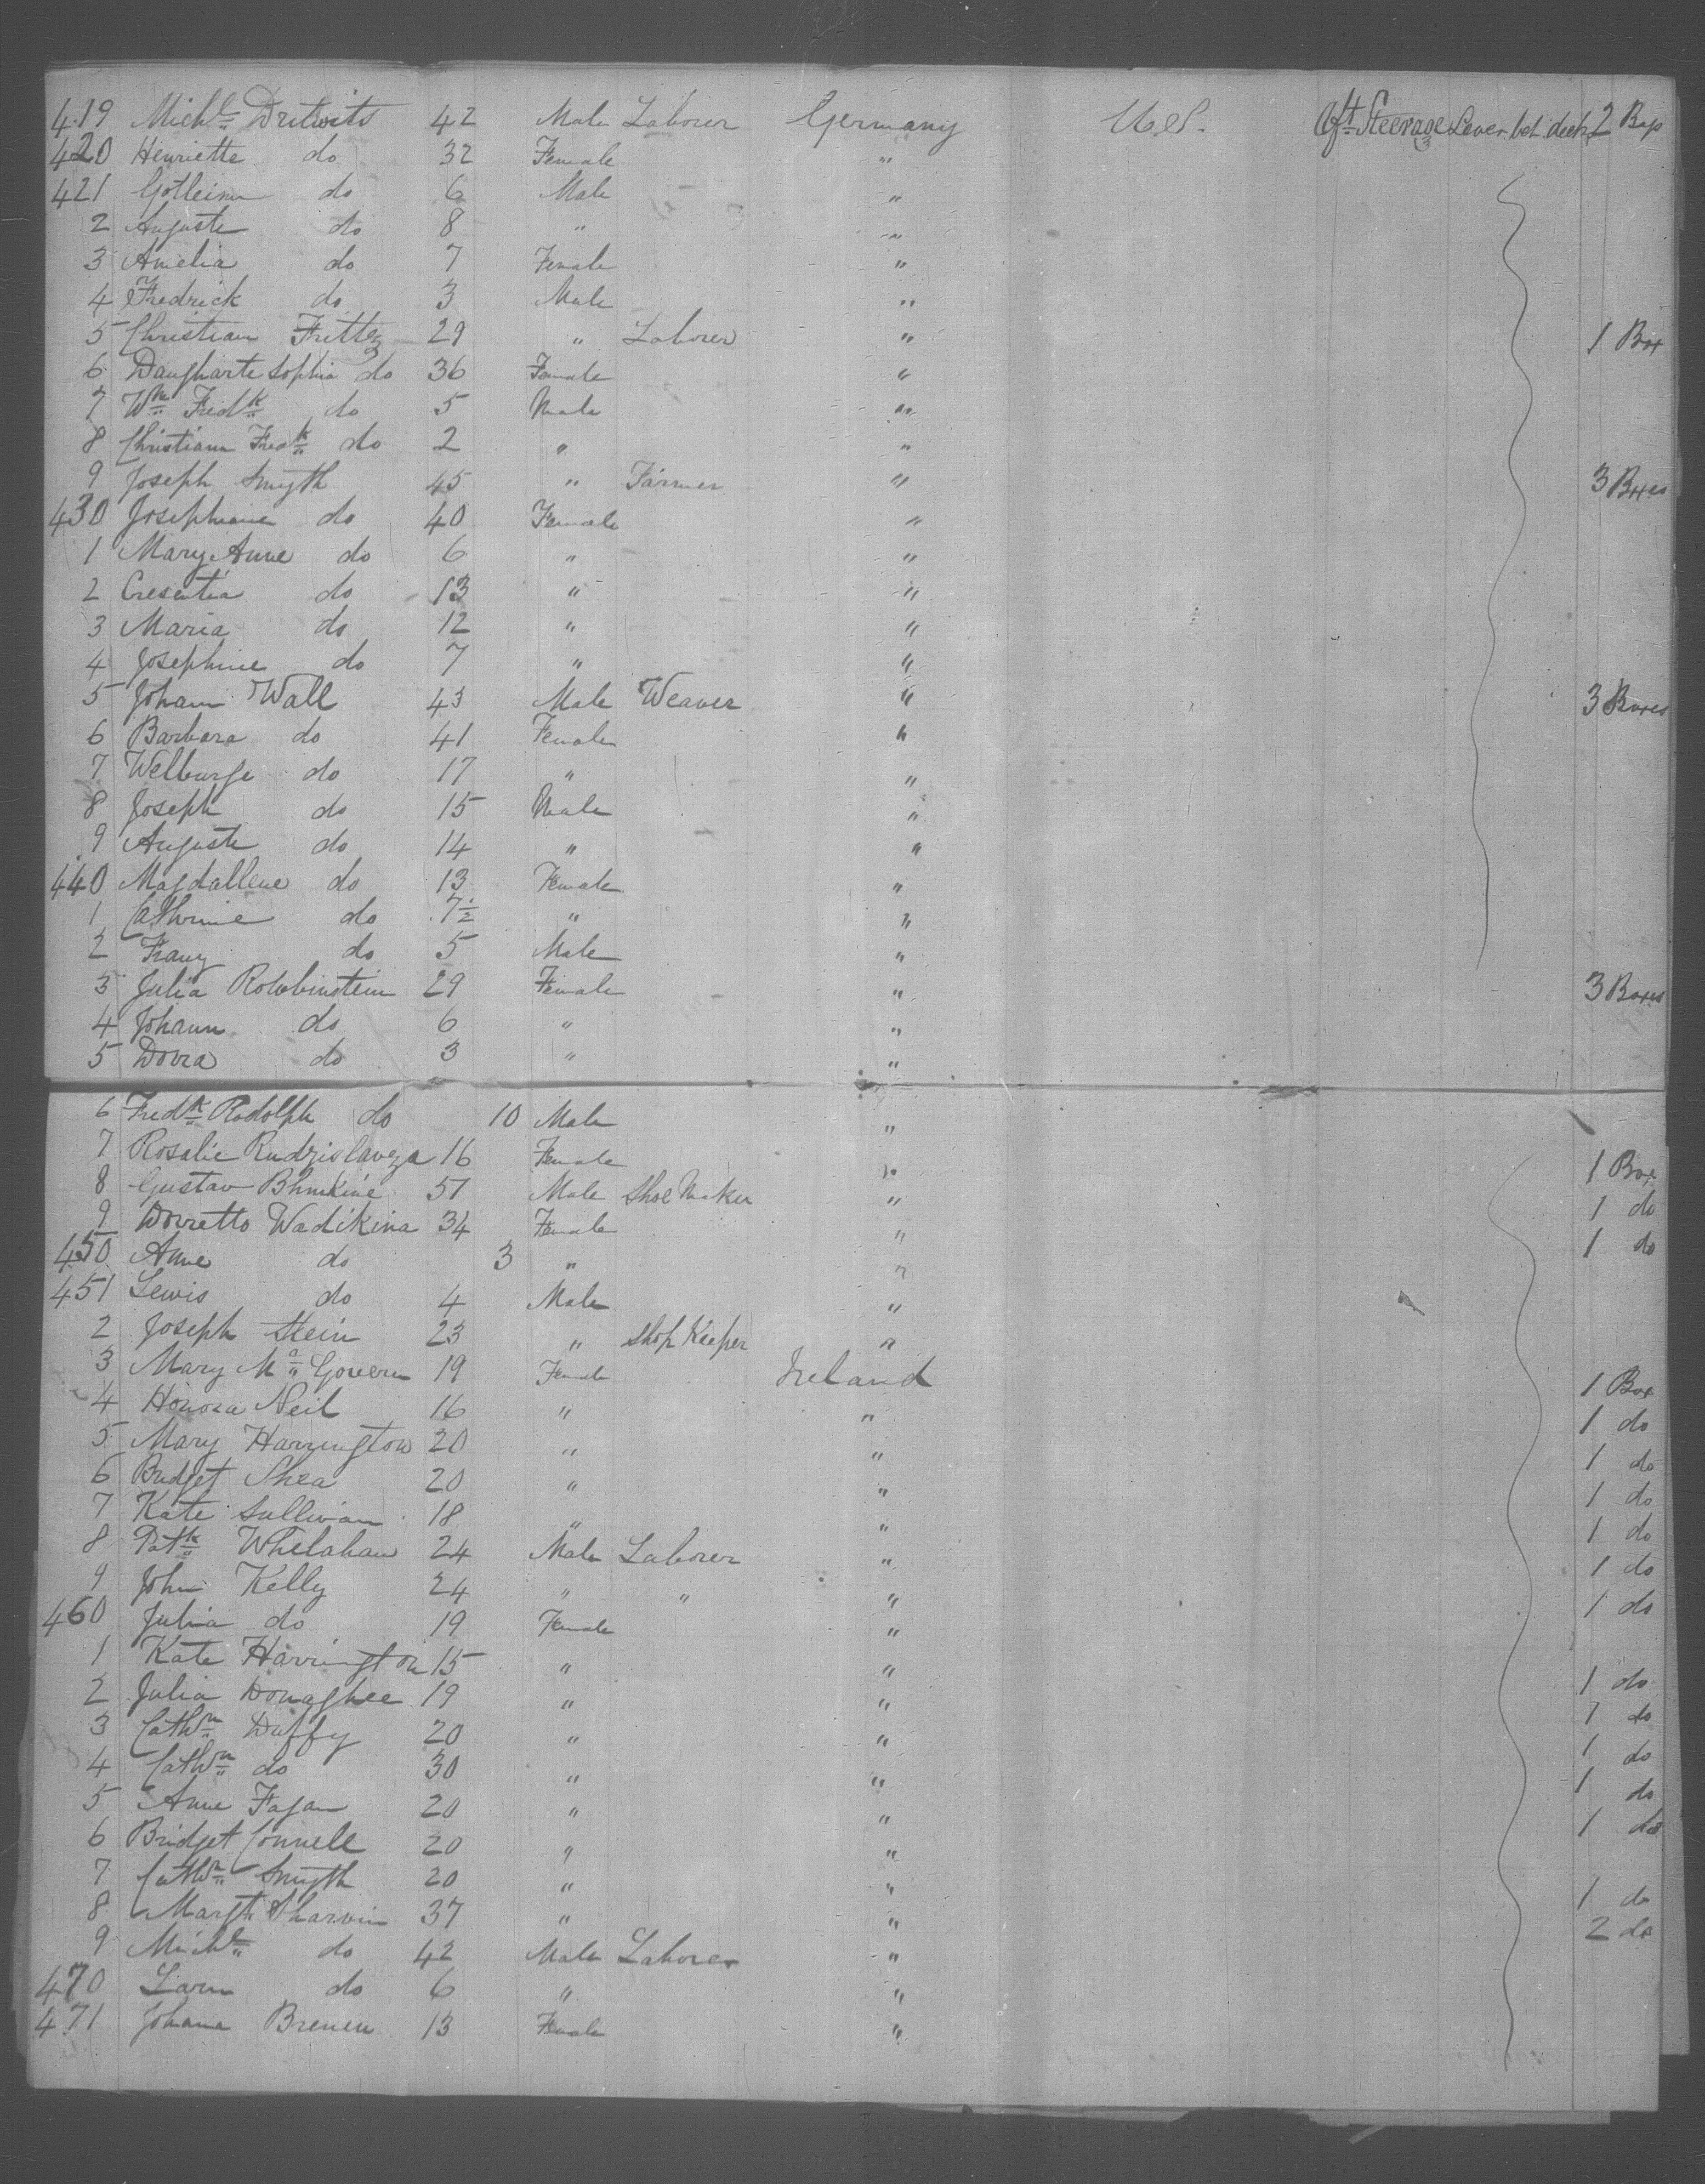 419 Michl Dritwits 42 Male Laborer Germany U.S. Aft Steerage Lower bet. deck 2 Bxs
420 Henriette do 32 Female "
421 Gotleinn do 6 Male "
2 Auguste do 8 " "
3 Amelia do 7 Female "
4 Fredrick do 3 Male "
5 Christian Frittez 29 " Laborer " 1 Box
6 Daugharte Sophia do 36 Female "
7 Wm Fredk do 5 Male "
8 Christiann Fredk do 2 " "
9 Joseph Smyth 45 " Farmer " 3 Boxes
430 Josephene do 40 Female "
1 Mary Anne do 6 " "
2 Cresentia do 13 " "
3 Maria do 12 " "
4 Josephine do 7 " "
5 Johann Wall 43 Male Weaver " 3 Boxes
6 Barbara do 41 Female "
7 Welburge do 17 " "
8 Joseph do 15 Male "
9 Auguste do 14 " "
440 Magdallene do 13 Female "
1 Cathrine do 7½ " "
2 Franz do 5 Male "
3 Julia Rowbinstein 29 Female " 3 Boxes
4 Johann do 6 " "
5 Dorra do 3 " "
6 Fredk Rodolph do 10 Male "
7 Rosalie Rudzislavza 16 Female " 1 Box
8 Gustav 51 Male Shoe Maker " 1 do
9 Dorretto Wadikina 34 Female " 1 do
450 Anne do 3 " "
451 Lewis do 4 Male "
2 Joseph Stein 23 " Shop Keeper "
3 Mary Mc Govern 19 Female Ireland 1 Box
4 Honora Neil 16 " " 1 do
5 Mary Harrington 20 " " 1 do
6 Bridget Shea 20 " " 1 do
7 Kate Sullivan 18 " " 1 do
8 Patk Whelahan 24 Male Laborer " 1 do
9 John Kelly 24 " " " 1 do
460 Julia do 19 Female "
1 Kate Harrington 15 " " 1 do
2 Julia Donaghee 19 " " 1 do
3 Cathn Duffy 20 " " 1 do
4 Cathn do 30 " " 1 do
5 Anne Fagan 20 " " 1 do
6 Bridget Connell 20 " "
7 Cathn Smyth 20 " " 1 do
8 Margt Sharvin 37 " " 2 do
9 Michl do 42 Male Laborer "
470 do 6 " "
471 Johana Brenen 13 Female "